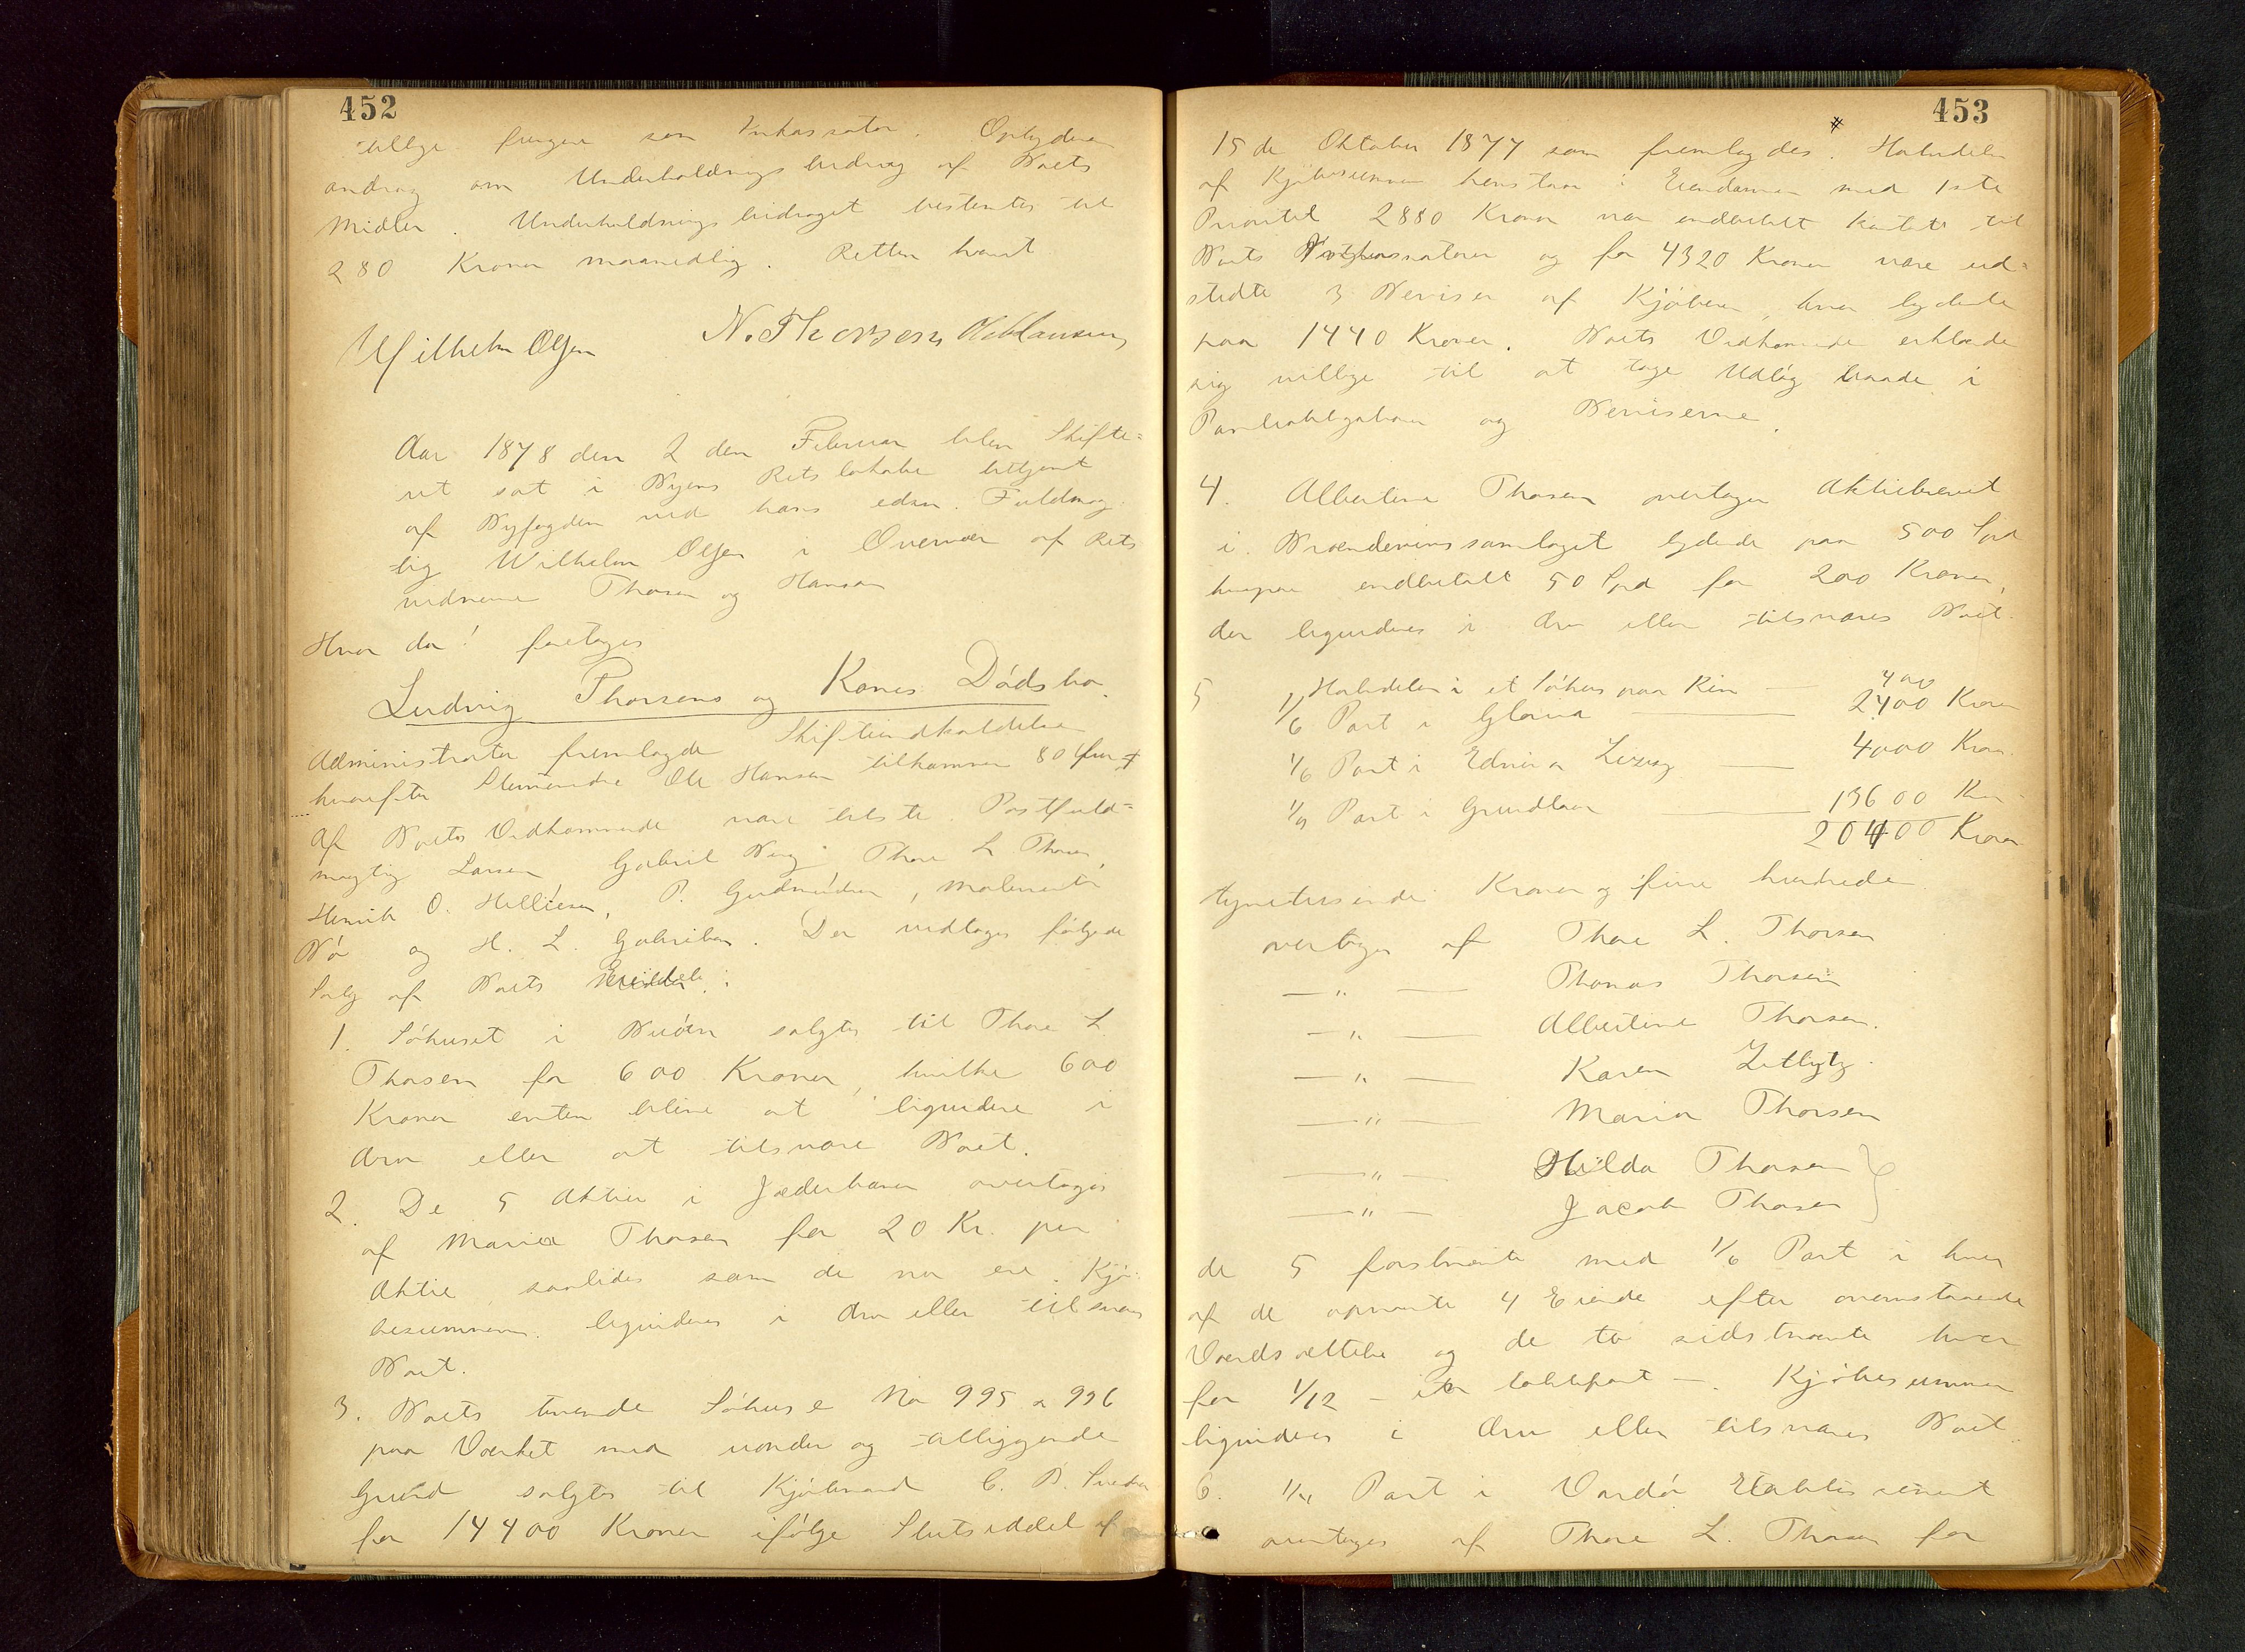 452
tillige fungere som Inkassator. Opbyderen
androg om Underholdningsbidrag af Boets
Midler. Underholdningsbidraget bestemtes til
280 Kroner maanedlig. Retten hævet
Wilhelm Olsen N. Thorsen O. Klausen
Aar 1878 den 2 den Februar blev Skifte=
ret sat i Byens Retslokale betjent
af Byfogden ved hans edsv. Fuldmæg
tig Wilhelm Olsen i Overvær af Rets
vidnerne Thorsen og Hansen
Hvor da! foretoges
Ludvig Thorsens og Kones Dødsbo.
Administrator fremlagde Skifteindkaldelse
hvorefter Ole Hansen tilkommer 80
Af Boets Vedkommende vare tilstede Postfuld=
mægtig Larsen Gabriel Berg Thore L. Thorsen,
Henrik O. Helliesen, P. Gudmundsen,
Bø og H. L. Gabrielsen. Der vedtoges følgende
Salg af Boets Eiendele:
1. Søhuset i Buøen solgtes til Thore L.
Thorsen for 600 Kroner, hvilke 600
Kroner enten blive at liquidere i
Arv eller at tilsvare Boet.
2. De 5 Aktier i Jæderbanen overtoges
af Maria Thorsen for 20 Kr. per
Aktie saaledes som de nu ere. Kjø-
besummen liquideres i Arv eller tilsvares
Boet.
3. Boets tvende Søhuse No 995 a 996
paa Værket med under og tilliggende
Grund solgtes til Kjøbmand C. B. Svendsen
for 14400 Kroner ifølge Slutseddel af
453
15 de Oktober 1877 som fremlagdes. Halvdelen
af Kjøbesummen henstaar i Eiendommen med 1ste
Prioritet 2880 Kroner var indbetalt kontant til
Boets Inkassatorer og for 4320 Kroner vare ud=
stedte 3 Beviser af Kjøberen, hver lydende
paa 1440 Kroner. Boets Vedkommende erklærede
sig villige til at tage Udlæg baade i
Panteobligationen og Beviserne.
4. Albertine Thorsen overtager Aktiebrevet
i Brændevinssamlaget lydende paa 500 Spd
hvorpaa indbetalt 50 Spd for 200 Kroner,
der liquideres i Arv eller tilsvares Boet.
5 Halvdelen i et Søhus paa Ren — 400
1/6 Part i Gloria — 2400 Kroner
1/6 Part i Edvin a Lizzug — 4000 Kron.
1/9 Part i Grundloven — 13600 Kr
20400 Kroner
tyvetusinde Kroner og fire hundrede
overtages af Thore L. Thorsen
— " — Thomas Thorsen
— " — Albertine Thorsen.
— " — Karen Zetlitz.
— " — Maria Thorsen
— " — Hilda Thorsen }
— " — Jacob Thorsen }
de 5 førstnævnte med 1/6 Part i hver
af de opnævnte 4 Eiende efter ovenstaaende
Værdsættelse og de to sidstnævnte hver
for 1/12 – en toltepart –. Kjøbesummen
liquideres i Arv eller tilsvares Boet.
6. Part i Vardø Etablissement
overtages af Thore L. Thorsen for